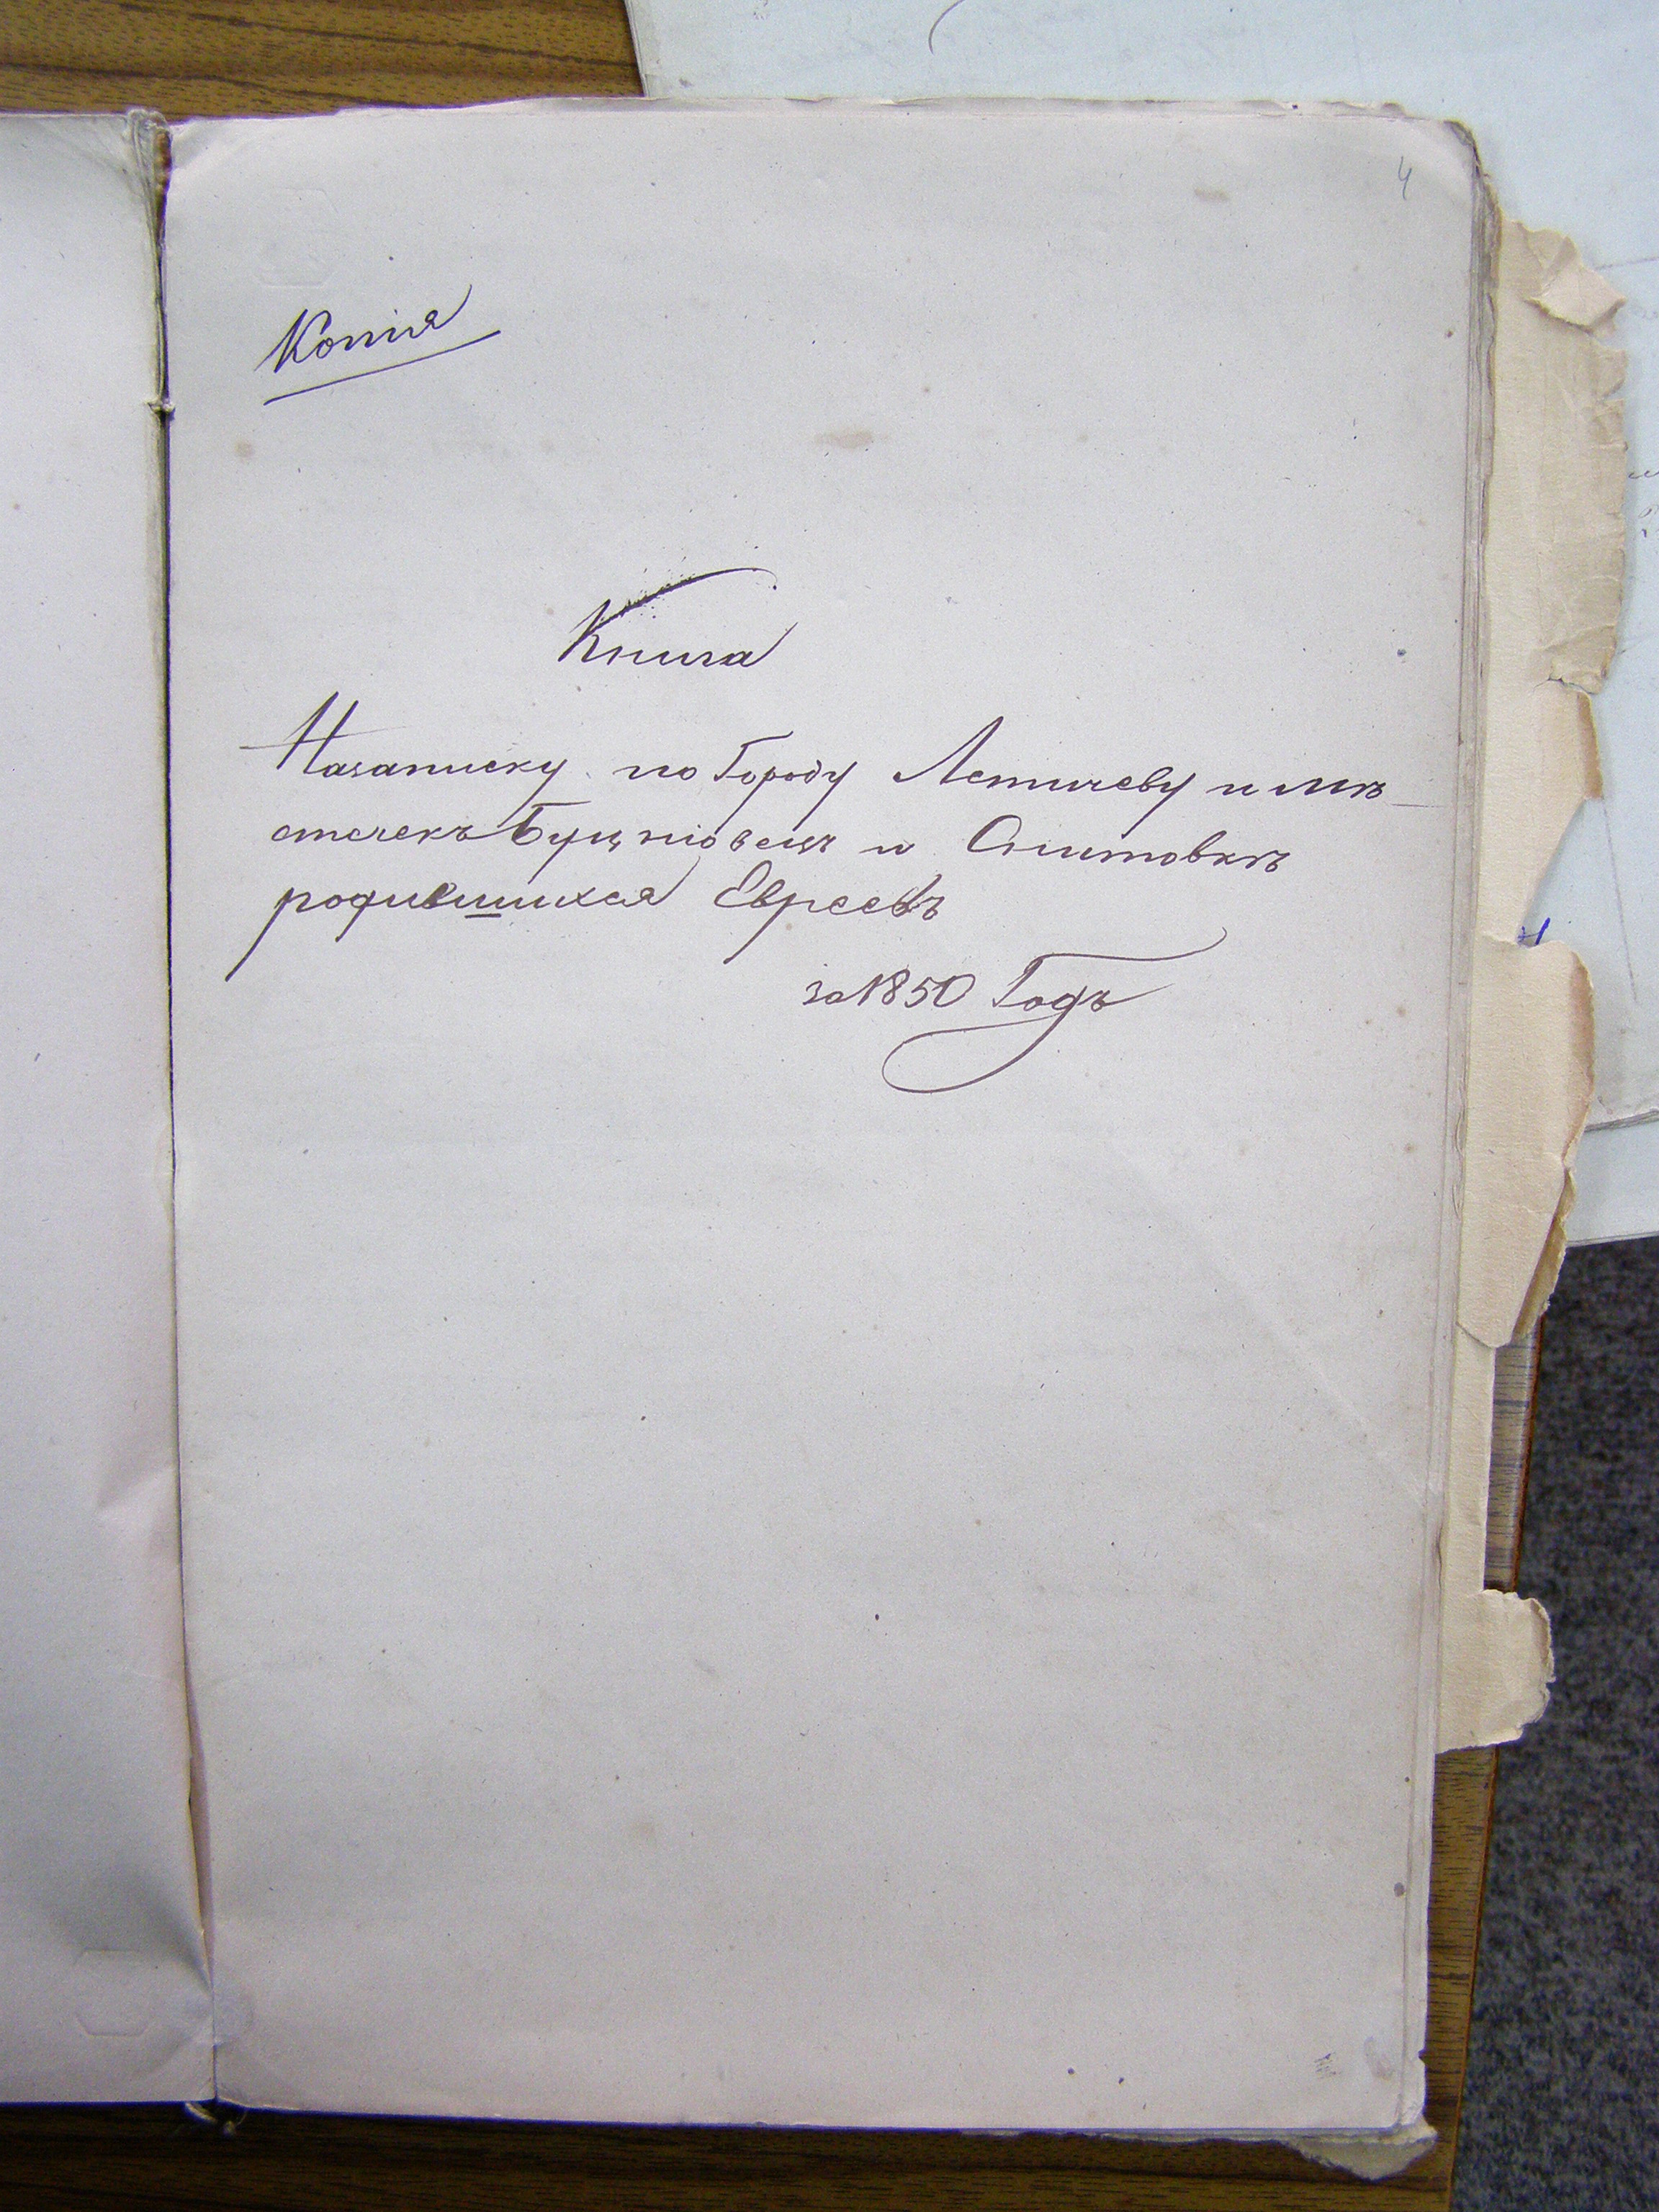 4
Копия
Книга
Назаписку по Городу Летичеву и мѣ-
стечекъ Буцновецъ и Снитовкѣ
родившихся Евреевъ
за 1850 Годъ